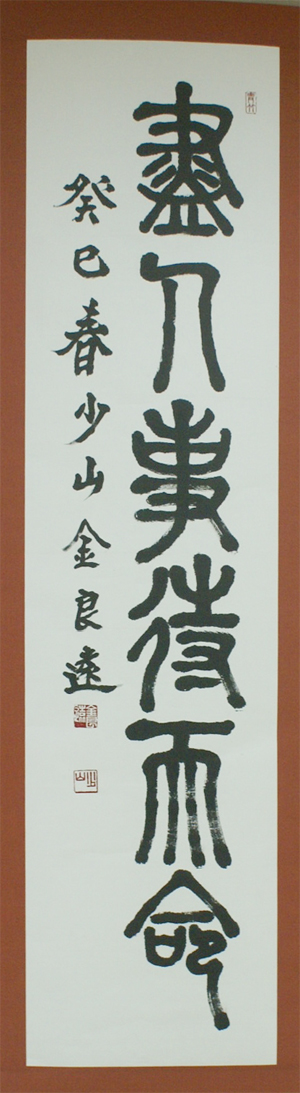 盡人事待天命
癸巳春少山金良遠
少山